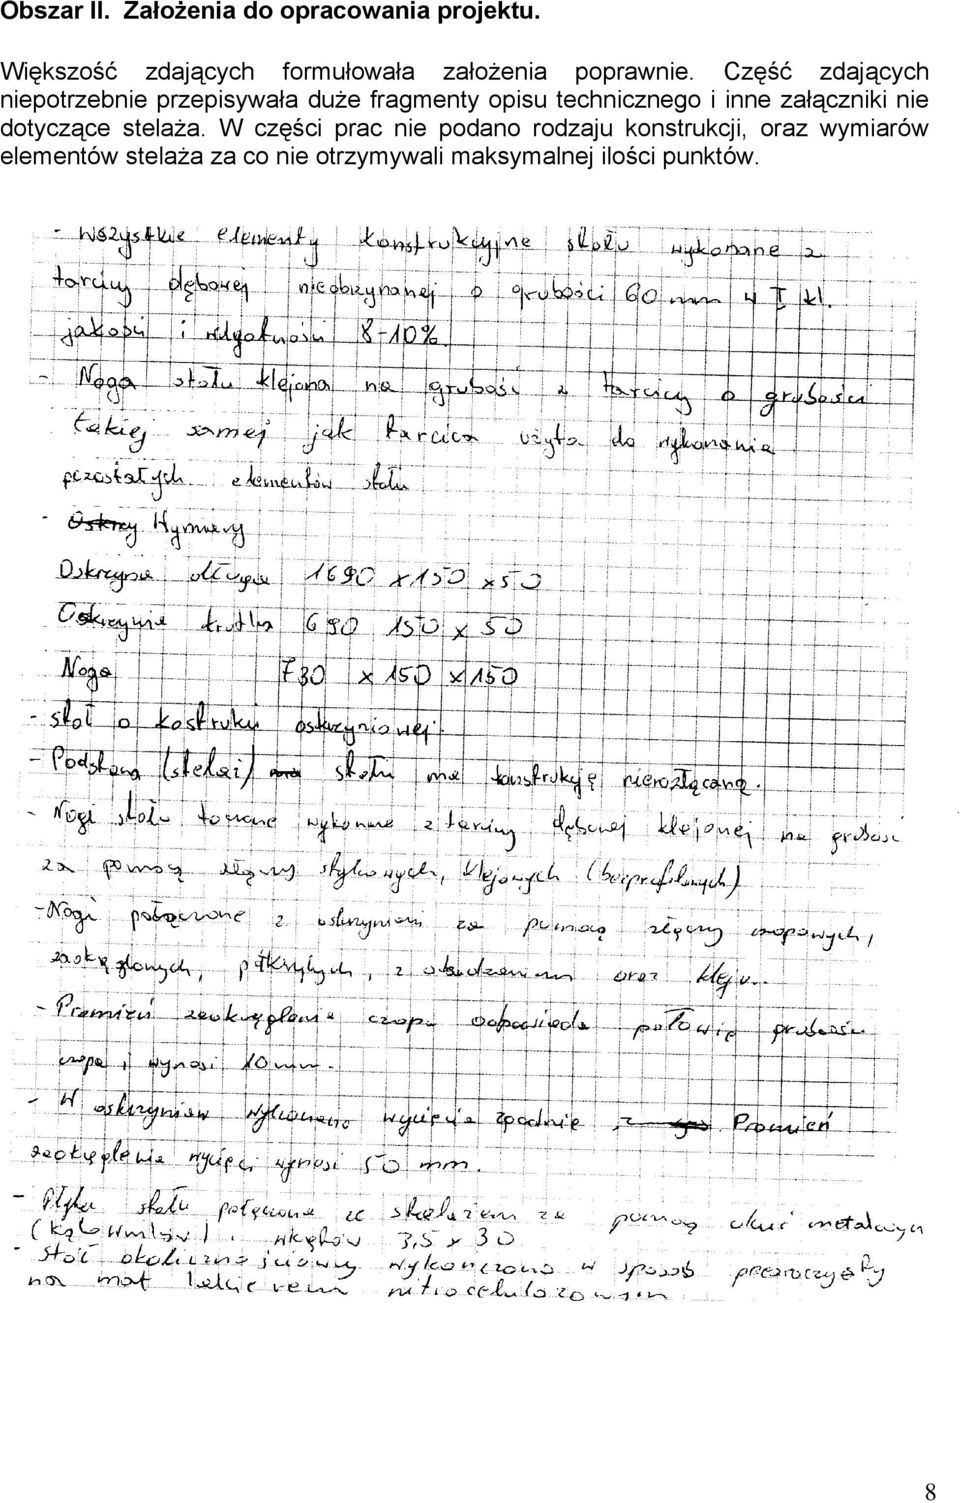 Obszar II. Założenia do opracowania projektu.
Większość zdających formułowała założenia poprawnie. Część zdających
niepotrzebnie przepisywała duże fragmenty opisu technicznego i inne załączniki nie
dotyczące stelaża. W części prac nie podano rodzaju konstrukcji, oraz wymiarów
elementów stelaża za co nie otrzymywali maksymalnej ilości punktów.
- Wszystkie elementy konstrukcyjne stołu wykonane z
tarcicy dębowej nieobrzynanej o grubości 60 mm w I kl.
jakości i wilgotności 8-10%.
- Noga stołu klejona na grubość z tarcicy o grubości
takiej samej jak tarcica użyta do wykonania
pozostałych elementów stołu
- Wymiary
Oskrzynia długa 1690 x 150 x 50
Oskrzynia krótka 690 150 x 50
Noga 730 x 150 x 150
- stół o kostrukcji oskrzyniowej.
- Podstawa (stelaż) stołu ma konstrukcję nierozłączną.
- Nogi stołu wykonane z tarcicy dębowej klejonej na grubość
za pomocą złączy stykowych, klejowych (bezprofilowych)
- Nogi połączone z oskrzyniami za pomocą złączy czopowych,
zaokrąglonych, półkrytych, z odsadzeniem oraz kleju.
- Promień zaokrąglenia czopa odpowiada połowie grubości
czopa i wynosi 10 mm.
- W oskrzyniach wykonano wycięcia spodnie, Promień
zaokrąglenia wycięć wynosi 50 mm.
- Płyta stołu połączona ze stelażem za pomocą okuć metalowych
(kątowników), wkrętów 3,5 x 30
- Stół okolicznościowy wykończono w sposób przezroczysty
na mat lakierem nitrocelulozowym
8